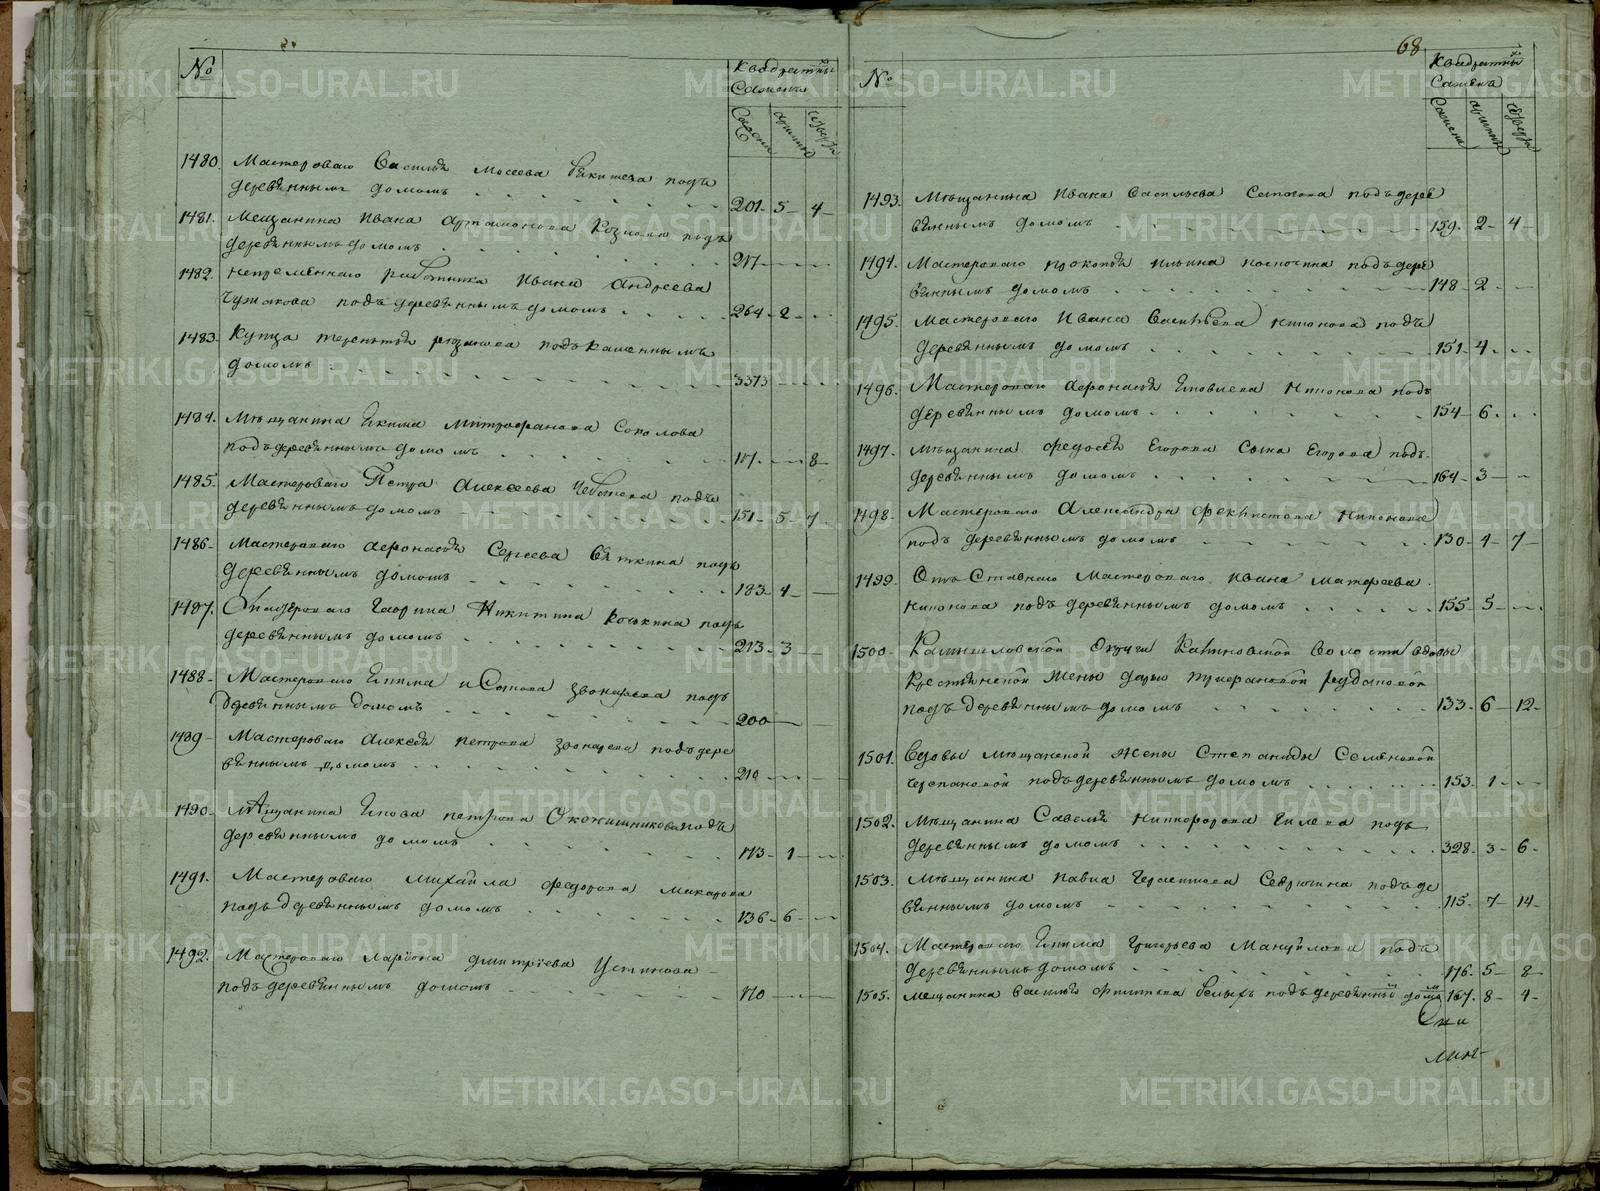 №
Квадратны
Сажень
Сажени
аршины
1480. Мастероваго Василья Мосеева подъ
деревяннымъ домомъ 201 - 5 - 4
1481. Мещанина Ивана Артамонова Козлова подъ
деревяннымъ домомъ 217
1482. Непременнаго работника Ивана Андреева
Чужакова подъ деревяннымъ домомъ 264 - 2
1483. Купца Терентья Рязанова подъ каменнымъ
домомъ 3373
1484. Мѣщанина Екима Митрофанова Соколова
подъ деревяннымъ домомъ 8
1485. Мастероваго Петра Алексеева подъ
деревяннымъ домомъ 151 - 5 - 7
1486. Мастероваго Афонасья Сергеева Вяткина подъ
деревяннымъ домомъ 183 - 4
1487. Гаврила Никитина Коськина подъ
деревяннымъ домомъ 213 - 3
1488. Мастероваго Екима Звонарева подъ
деревяннымъ домомъ 200
1489. Мастероваго Алексея Петрова Звонарева подъ дере
вяннымъ домомъ 210
1490. Мѣщанина Якова Петрова Оконишникова подъ
деревяннымъ домомъ 173 - 1
1491. Мастероваго Михайла Федорова Макарова
подъ деревяннымъ домомъ 136 - 6
1492. Мастероваго Ларіона Дмитріева Устинова
подъ деревяннымъ домомъ 170
68
№
Квадратны
Сажень
Сажени
аршины
1493. Мѣщанина Ивана Васильева Сапогова подъ дере
вяннымъ домомъ 159 - 2 - 4
1494. Мастероваго Прокопья Ильина подъ дере
вяннымъ домомъ 148 - 2
1495. Мастероваго Ивана Васильева Никонова подъ
деревяннымъ домомъ 151 - 4
1496. Мастероваго Афонасья Яковлева Никонова подъ
деревяннымъ домомъ 154 - 6
1497. Мѣщанина Федосея Егорова Сына Егорова подъ
деревяннымъ домомъ 164 - 3
1498. Мастероваго Александра Феклистова Никонова
подъ деревяннымъ домомъ 130 - 4 - 7
1499. Отставнаго Мастероваго Ивана Матвеева
Никонова подъ деревяннымъ домомъ 155 - 5
1500. Камышловской Округи волости вдовы
Крестьянской жены Дарьи
подъ деревяннымъ домомъ 133 - 6 - 12
1501. Вдовы мѣщанской жены Степаниды Семеновой
Черепановой подъ деревяннымъ домомъ 153 - 1
1502. Мѣщанина Савелья Никифорова Гилева подъ
деревяннымъ домомъ 328 - 3 - 6
1503. Мѣщанина Павла Герасимова Севрюгина подъ де
вяннымъ домомъ 115 - 7 - 14
1504. Мастероваго Екима Григорьева Мануйлова подъ
деревяннымъ домомъ 176 - 5 - 8
1505. Мещанина Василья Филипова Белыхъ подъ деревянны домо 167 - 8 - 4
METRIKI.GASO-URAL.RU